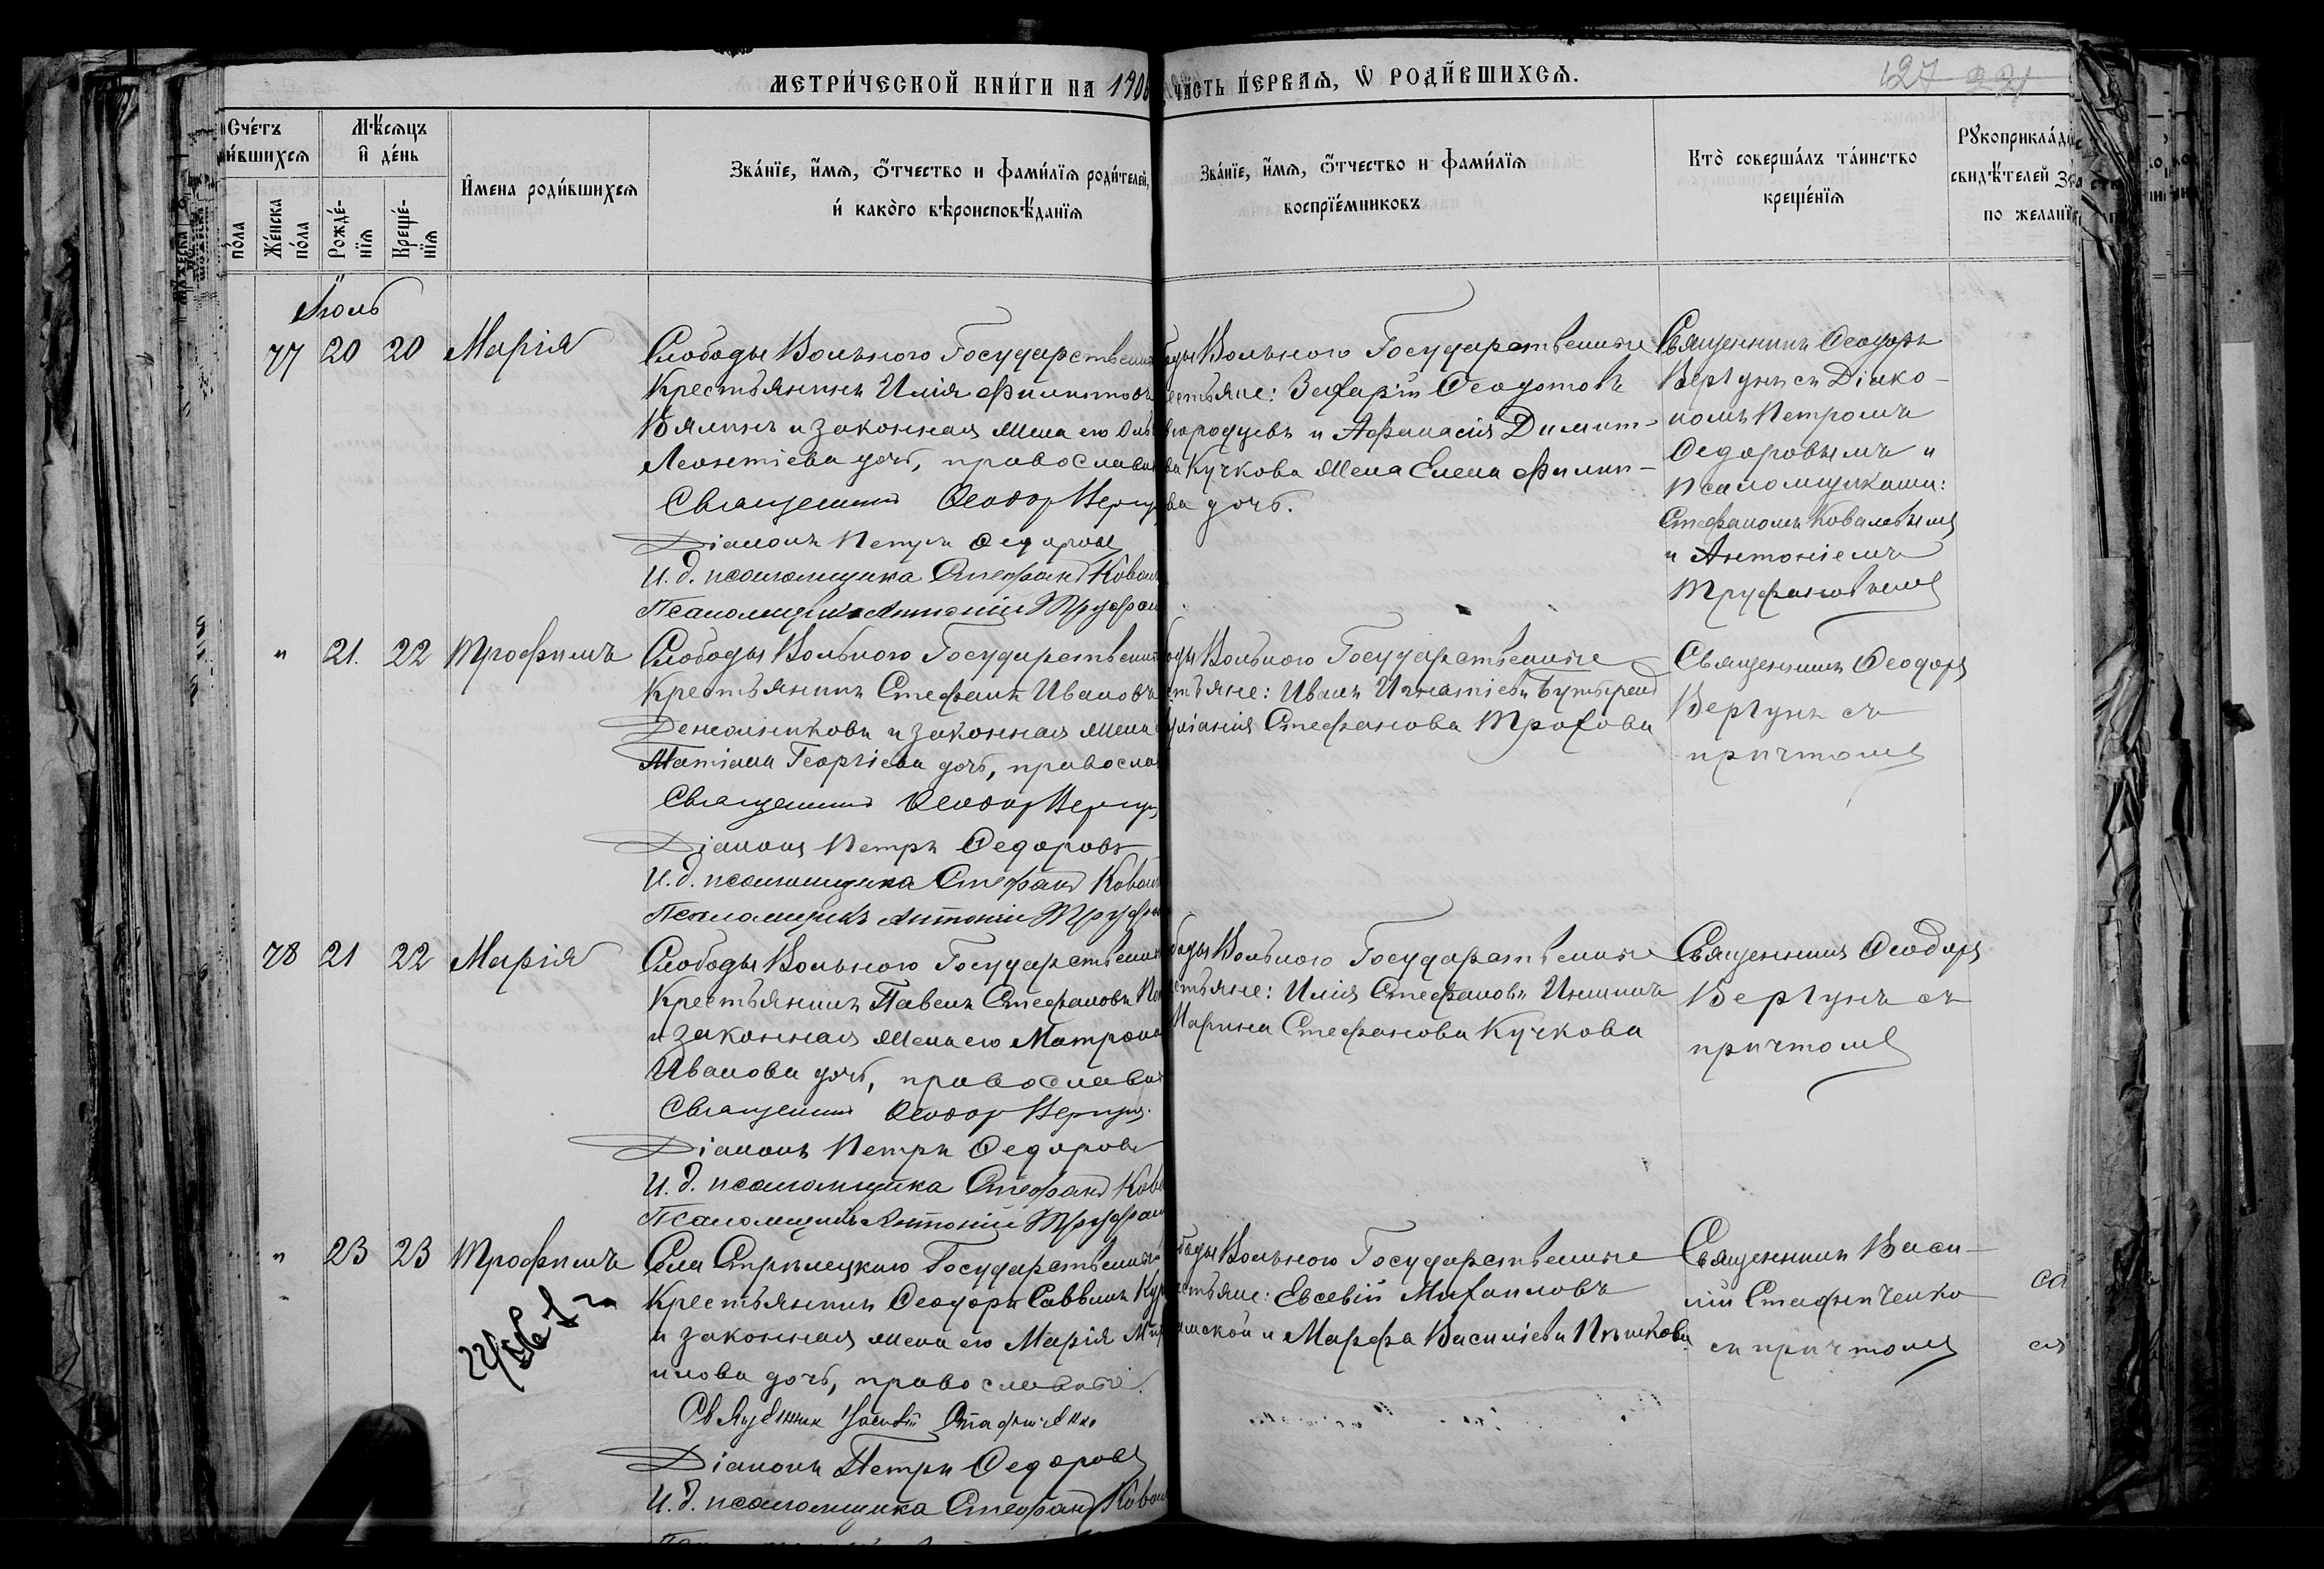 МЕТРИ́ЧЕСКОЙ КНИ́ГИ НА 190
ЧА́СТЬ ПЕ́РВАѦ, Ѡ РОДИ́ВШИХСѦ.
127
Сче́тъ
и́вшихсѧ
Мѣ́сѧцъ
и де́нь
И́мена роди́вшихсѧ
Зва́нїе, и́мѧ, о́тчество и фами́лїѧ роди́телей,
и како́го вѣроисповѣ́данїѧ
Зва́нїе, и́мѧ, о́тчество и фами́лїѧ
воспрїе́мниковъ
Кто̀ соверша́лъ та́инство
креще́нїѧ
Рꙋкоприкла́д
свидѣ́телей
по желанї
по́ла
Же́нска
по́ла
Рожде́-
нїѧ
Креще́-
нїѧ
Іюль
77 20 20 Марія
Слободы Вольного Государствен
Крестьянинъ Илія Филиповъ
Вялинъ и законная жена его
Леонтіева дочь, православн
Священникъ Ѳеодор Вергу
Діаконъ Петръ Ѳедоровъ
И. д. псаломщика Стефанъ Ковал
Псаломщикъ Антоній Труфан
ды Вольного Государственные
стьяне: Захарій Ѳеодотовъ
городцевъ и Аѳанасія Димит-
ва Кучкова жена Елена Филип-
ва дочь.
Священникъ Ѳеодоръ
Вергунъ съ Діако-
номъ Петромъ
Ѳедоровымъ и
Псаломщиками:
Стефаномъ Ковалевымъ
и Антоніемъ
Труфановымъ
" 21. 22 Трофимъ
Слободы Вольного Государствен
Крестьянинъ Стефанъ Ивановъ
Денежниковъ и законная жена
Татіана Георгіева дочь, правосла
Священникъ Ѳеодор Вергун
Діаконъ Петръ Ѳедоровъ
И. д. псаломщика Стефанъ Ковал
Псаломщикъ Антоній Труфа
ды Вольного Государственные
стьяне: Иванъ Игнатіевъ
Стефанова Трохова
Священникъ Ѳеодоръ
Вергунъ съ
причтомъ
78 21 22 Марія
Слободы Вольного Государствен
Крестьянинъ Павелъ Стефановъ
и законная жена его Матрона
Иванова дочь, православн
Священникъ Ѳеодор Вергун.
Діаконъ Петръ Ѳедоровъ
И. д. псаломщика Стефанъ Кова
Псаломщикъ Антоній Труфан
ды Вольного Государственные
стьяне: Илія Стефановъ
Марина Стефанова Кучкова
Священникъ Ѳеодоръ
Вергунъ съ
причтомъ
" 23 23 Трофимъ
Села Стрѣлецкаго Государственный
Крестьянинъ Ѳеодоръ Саввинъ
и законная жена его Марія
илова дочь, православные.
Священник Василій Стафіевченко
Діаконъ Петръ Ѳедоровъ
И. д. псаломщика Стефанъ Ковал
боды Вольного Государственные
стьяне: Евсевій Михаиловъ
и Марѳа Василіева Пѣшкова.
Священникъ Васи-
лій
съ причтомъ